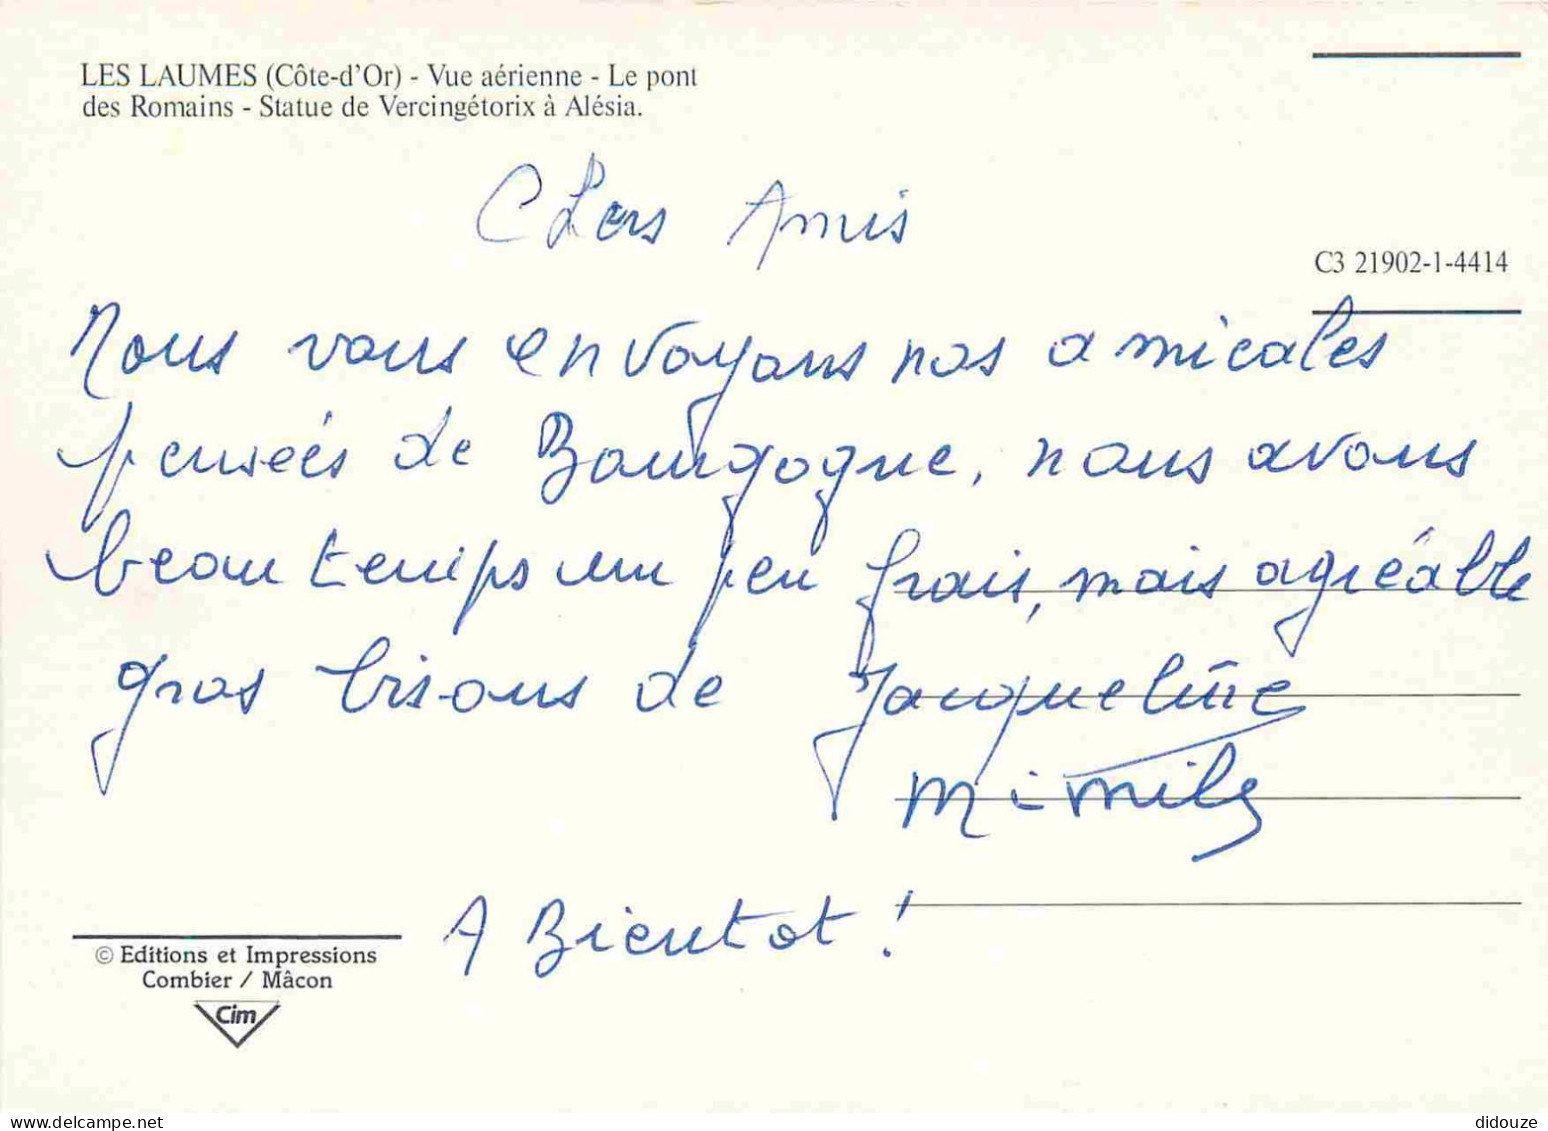 LES LAUMES (Côte-d'Or) - Vue aérienne - Le pont
des Romains - Statue de Vercingétorix à Alésia.
Chers Amis
C3 21902-1-4414
Nous vous envoyons nos amicales
pensées de Bourgogne, nous avons
beau temps un peu frais, mais agréable
gros bisous de Jacqueline
Mimile
A Bientot !
© Editions et Impressions
Combier / Mâcon
Cim
didouze